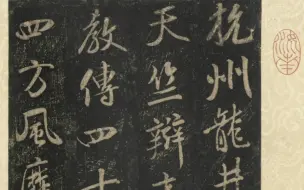 杭州龍井
天竺辯才
教傳四十
四方風靡